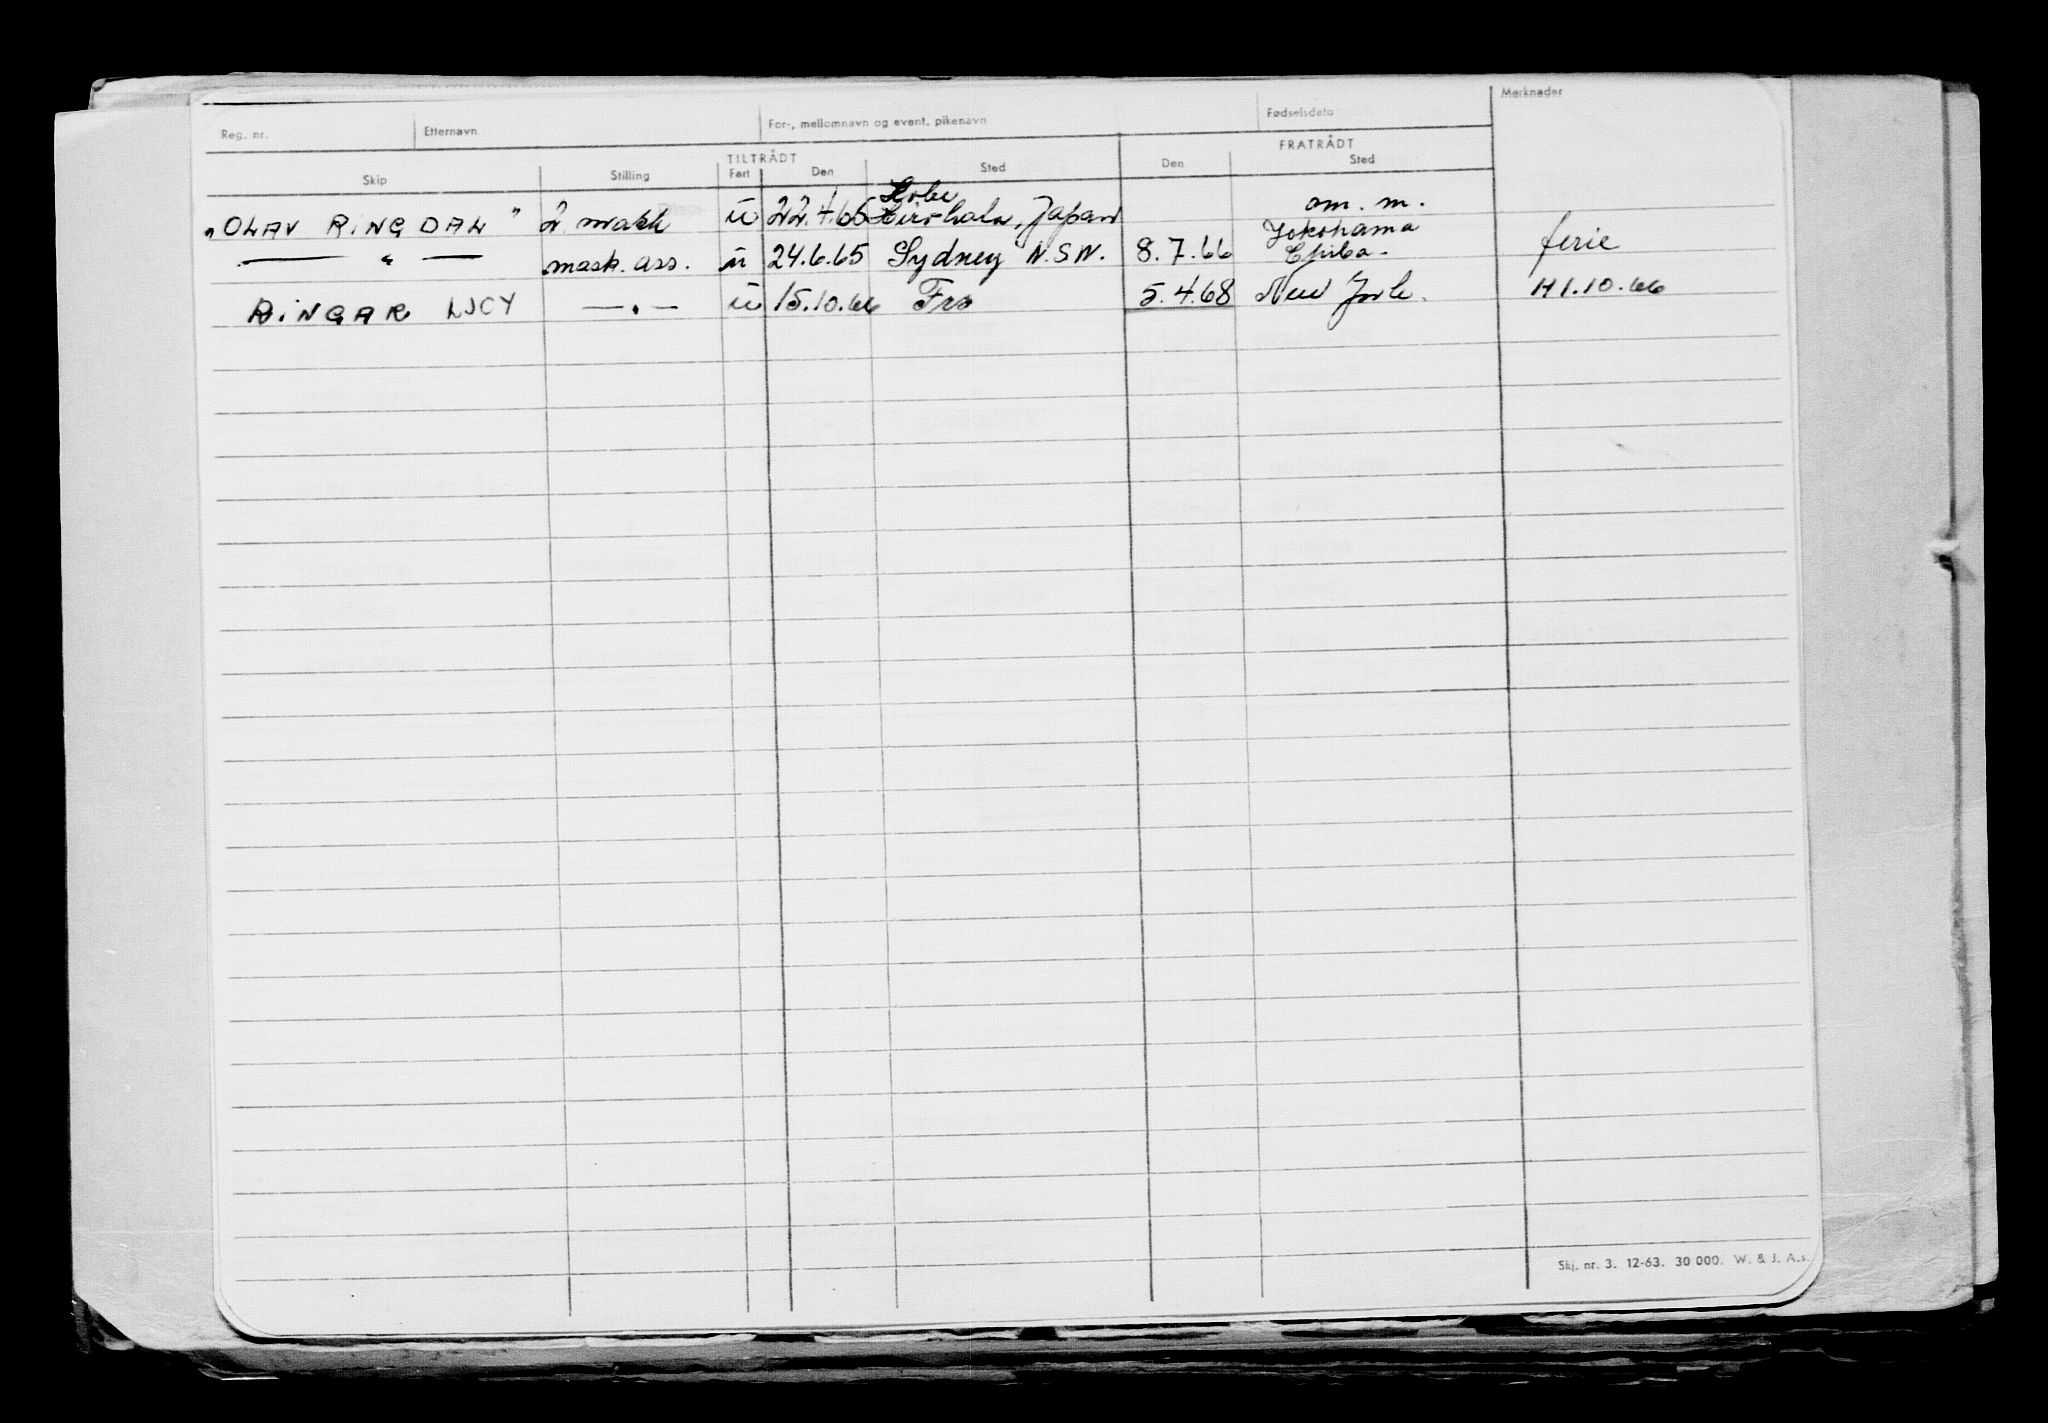 Reg. nr. Etternavn For-, mellomnavn og event. pikenavn Fødselsdato Merknader
TILTRÅDT FRATRÅDT
Skip Stilling Fart Den Sted Den Sted
Kobe
„OLAV RINGDAL" 2 mask ü 22.4.65 Japan om. m.
Yokohama
— " — mask. ass. ü 24.6.65 Sydney N.S.W. 8.7.66 Chiba. ferie
RINGAR LUCY — " — ü 15.10.66 Fra 5.4.68 New York. H1.10.66
Skj. nr. 3. 12-63. 30 000. W. & J. A.s.